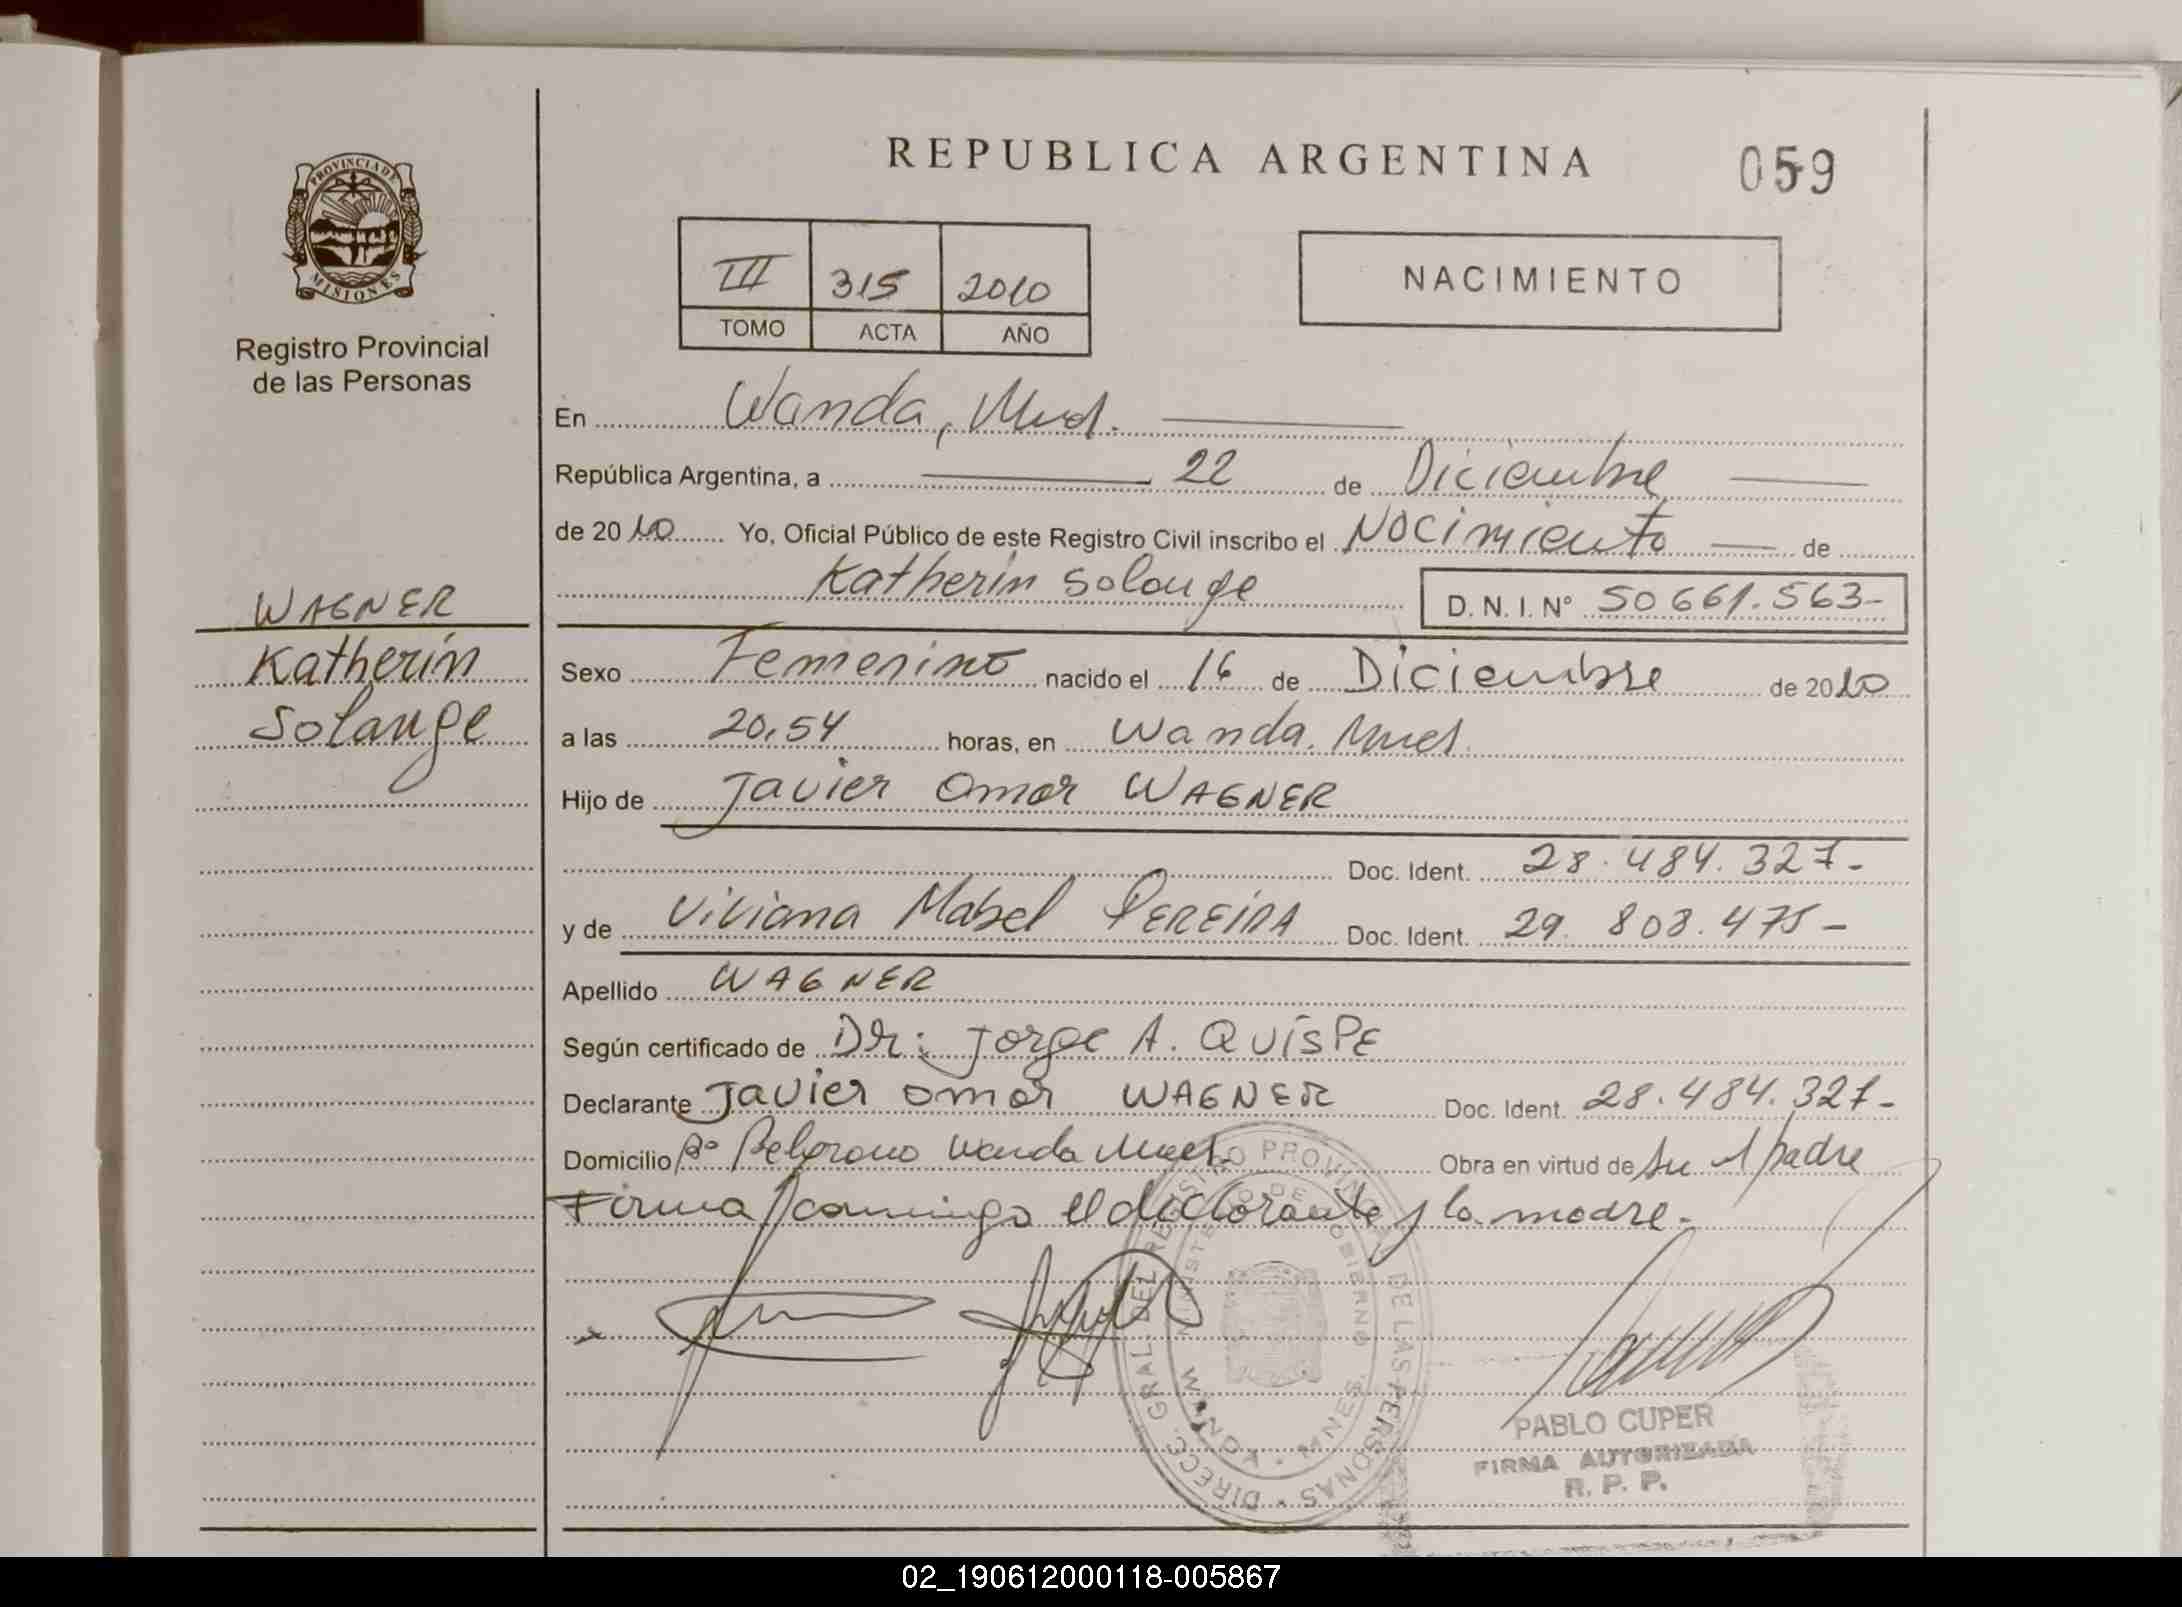 REPUBLICA ARGENTINA
059
PROVINCIA DE
MISIONES
Registro Provincial
de las Personas
III 315 2010
TOMO ACTA AÑO
NACIMIENTO
En Wanda,
República Argentina, a 22 de Diciembre
de 2010 Yo, Oficial Público de este Registro Civil inscribo el Nacimiento de
Katherin Solange D. N. I. N° 50661.563-
WAGNER
Katherin
Solange
Sexo Femenino nacido el 16 de Diciembre de 2010
a las 20,54 horas, en Wanda.
Hijo de Javier Omar WAGNER
Doc. Ident. 28.484.327-
y de Viviana Mabel PEREIRA Doc. Ident. 29.808.475-
Apellido WAGNER
Según certificado de Dr: Jorge A. QUISPE
Declarante Javier Omar WAGNER Doc. Ident. 28.484.327-
Domicilio Bº Belgrano Wanda Obra en virtud de su padre
Firma conmigo el declarante y la madre.
DIRECC. GRAL. DEL REGISTRO PROVINCIAL DE LAS PERSONAS
MINISTERIO DE GOBIERNO
WANDA - MNES.
PABLO CUPER
FIRMA AUTORIZADA
R. P. P.
02_190612000118-005867